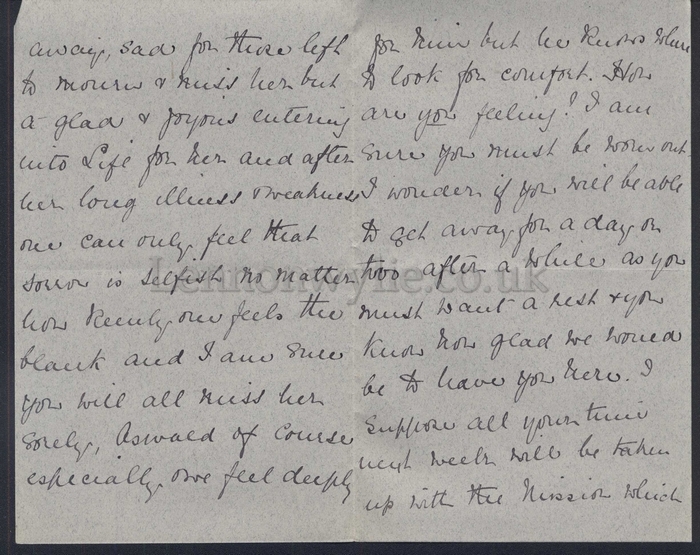 away, sad for those left
to mourn & miss her but
a glad & joyous entering
into Life for her and after
her long illness & weakness
one can only feel that
sorrow is selfish no matter
how keenly one feels the
blank and I am sure
you will all miss her
sorely, Oswald of course
especially & we feel deeply
for him but he knows where
to look for comfort. How
are you feeling? I am
sure you must be worn out
I wonder if you will be able
to get away for a day or
two after a while as you
must want a rest & you
know how glad we would
be to have you here. I
suppose all your time
next week will be taken
up with the Mission which
Lennonwylie.co.uk